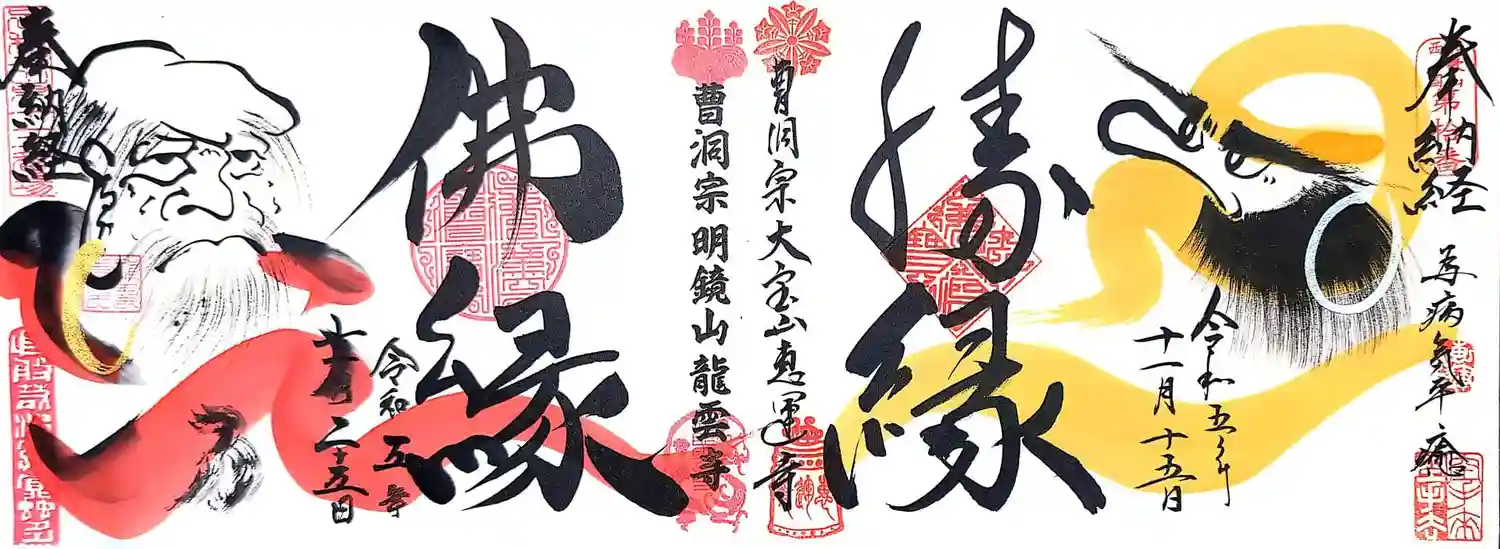 奉納経
為病気平癒
勝縁
令和五年
十一月十五日
曹洞宗大宝山恵運寺
曹洞宗明鏡山龍雲寺
佛縁
令和五年
十一月二十五日
奉納経